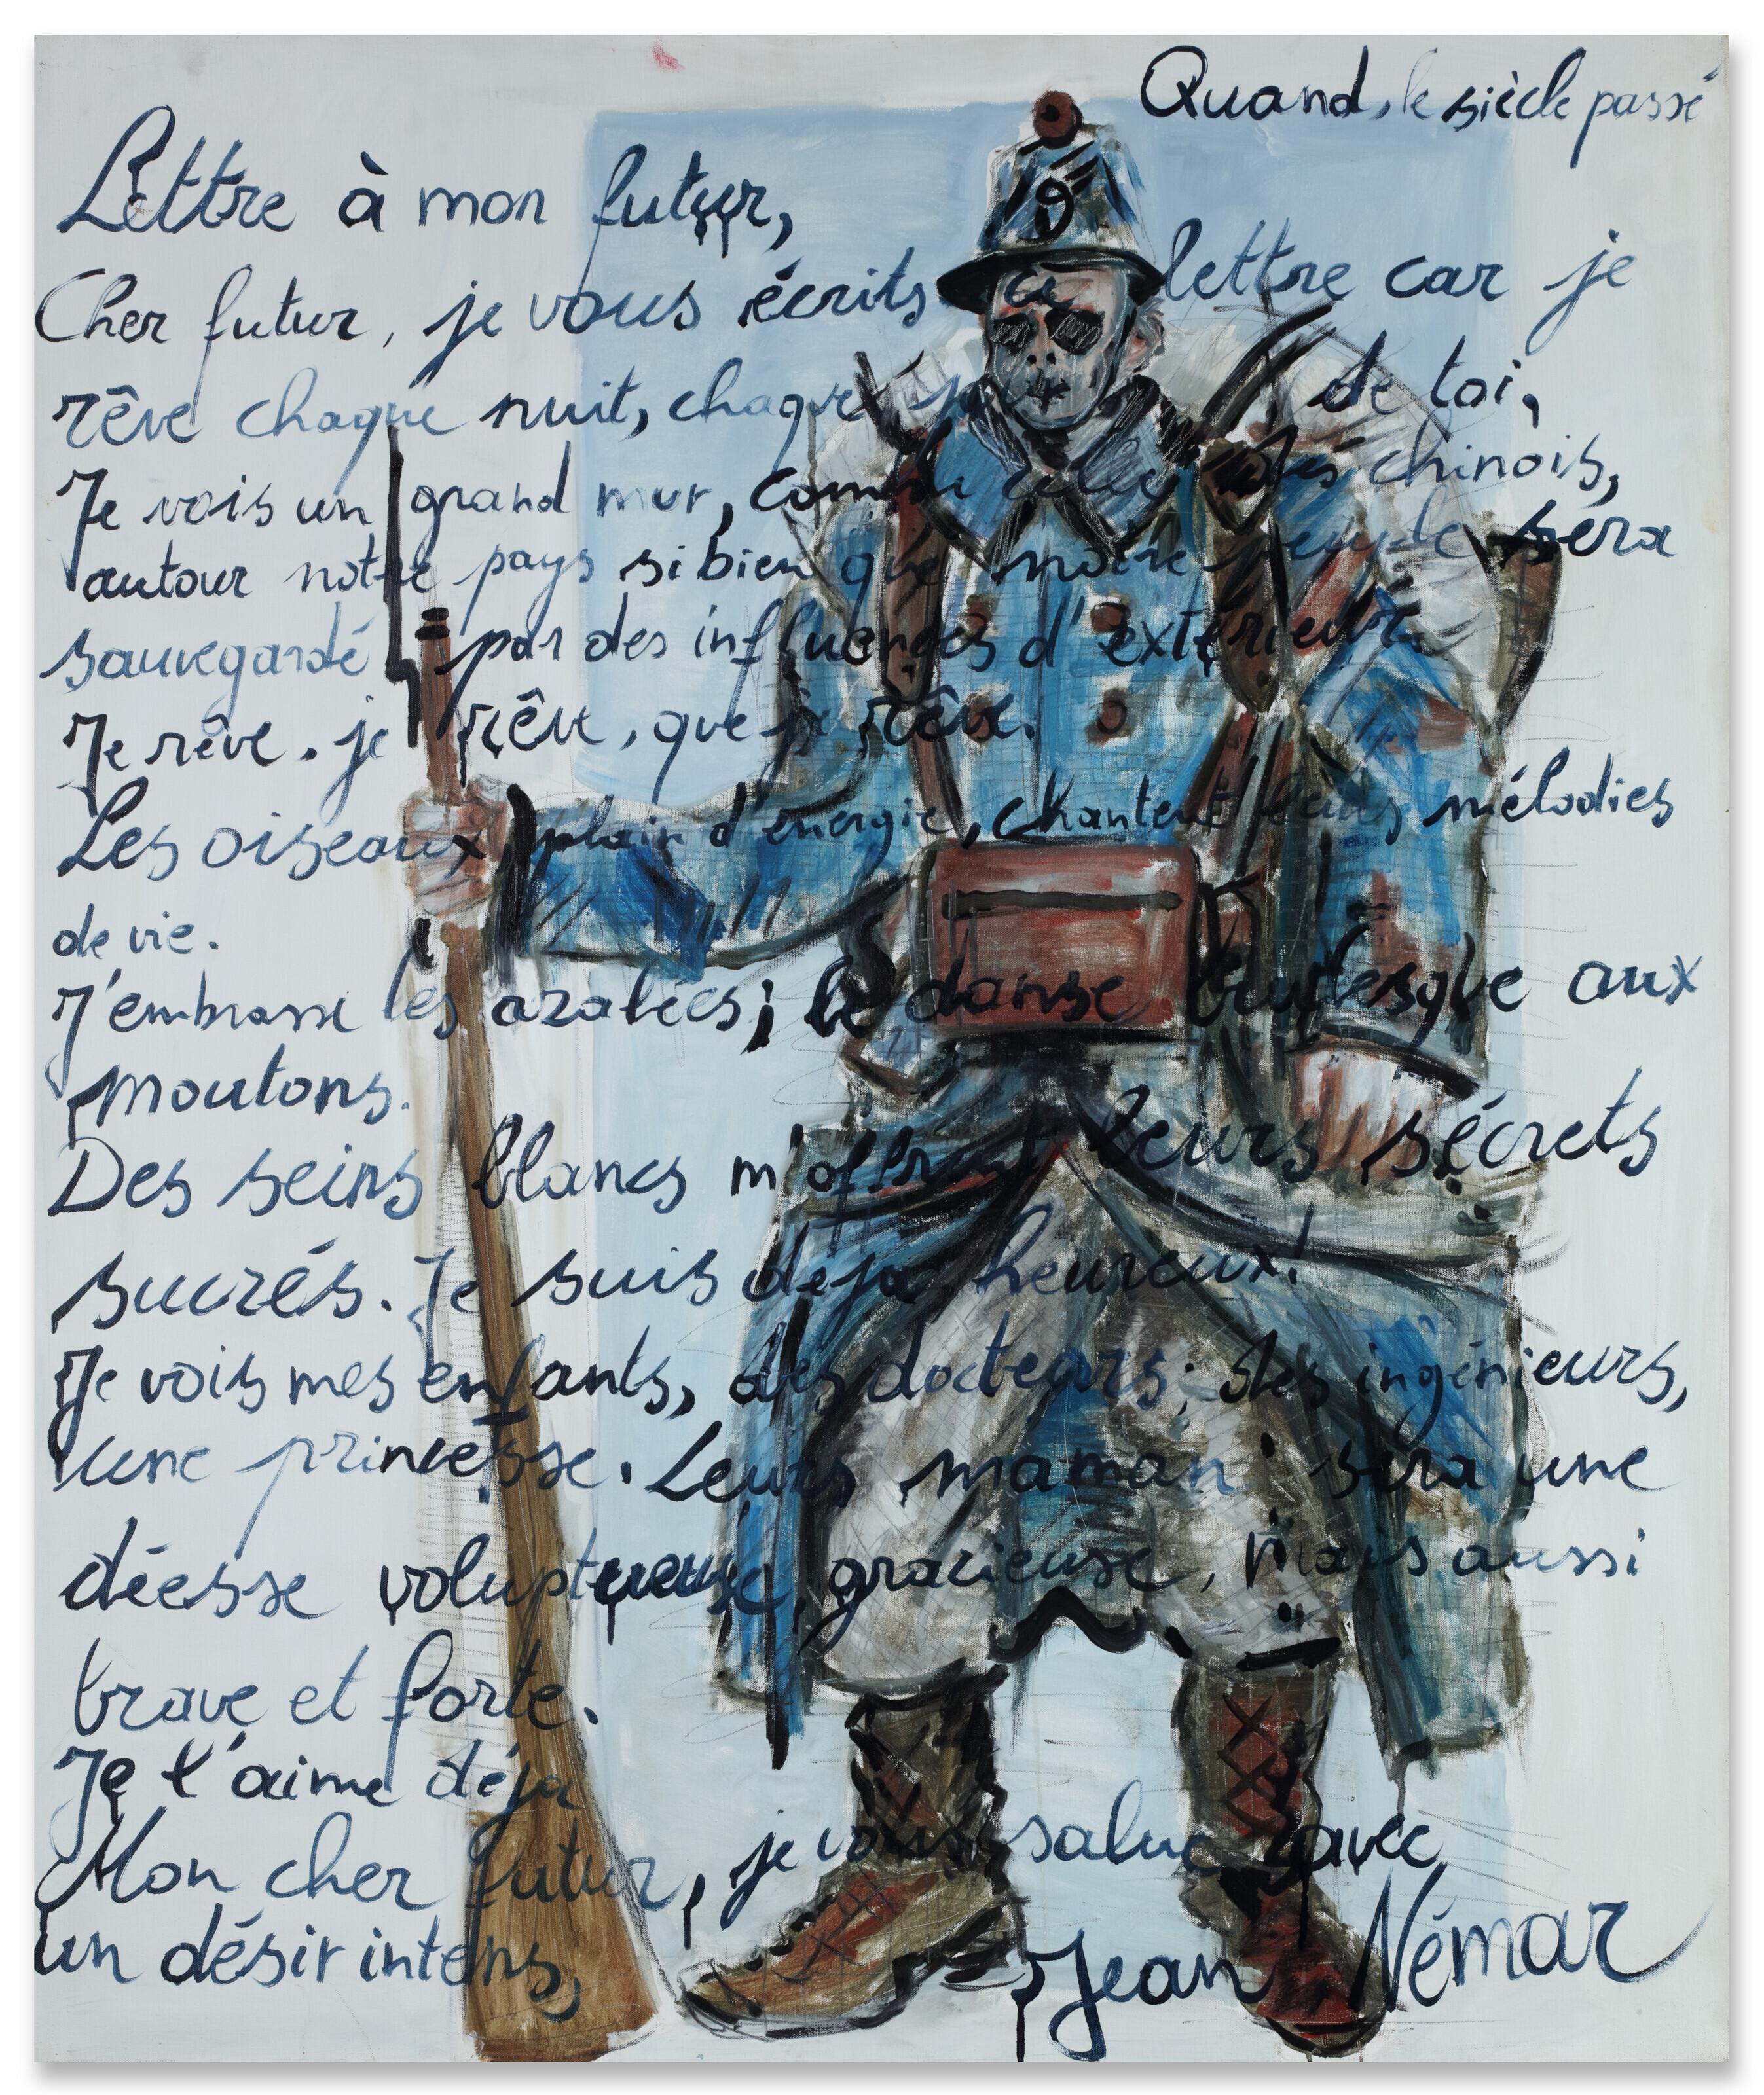 Quand, le siècle passé
Lettre à mon futur,
Cher futur, je vous écrits ce lettre car je
rêve chaque nuit, chaque de toi,
Je vois un grand mur, comme celui des chinois,
autour notre pays si bien que notre peuple séra
sauvegardé par des influences d'extérieur.
Je rêve. je rêve, que je rêve.
Les oiseaux, plain d'énergie, chantent leurs mélodies
de vie.
J'embrasse les azalées; je danse burlesque aux
moutons.
Des seins blancs m'offrent leurs sécrets
sucrés. Je suis déja heureux!
Je vois mes enfants, des docteurs, des ingénieurs,
une princesse. Leurs maman séra une
déesse voluptueuse, gracieuse, mais aussi
brave et forte.
Je t'aime déja
Mon cher futur, je vous salue avec
un désir intens,
Jean Némar
9